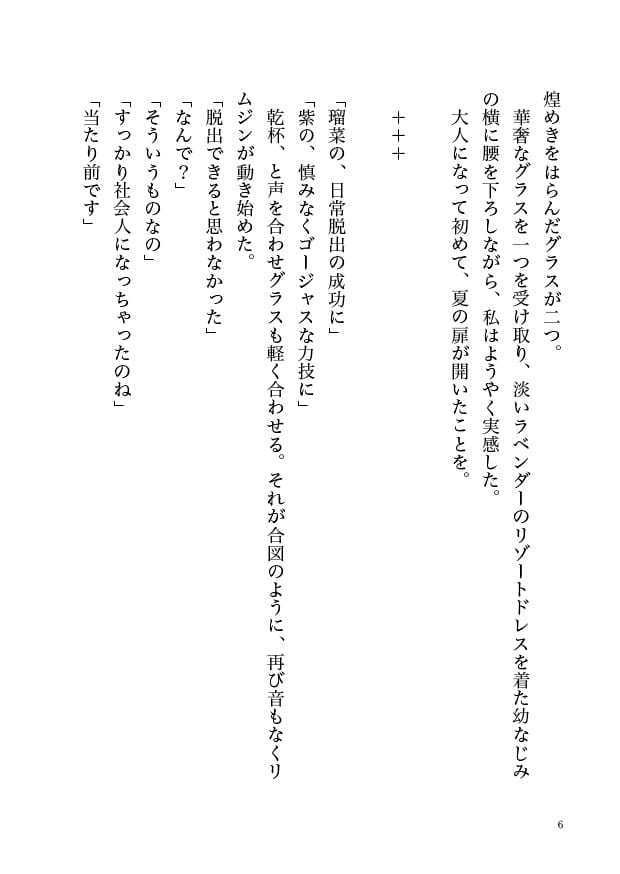 煌めきをはらんだグラスが二つ。
華奢なグラスを一つを受け取り、淡いラベンダーのリゾートドレスを着た幼なじみ
の横に腰を下ろしながら、私はようやく実感した。
大人になって初めて、夏の扉が開いたことを。
+++
「瑠菜の、日常脱出の成功に」
「紫の、慎みなくゴージャスな力技に」
乾杯、と声を合わせグラスも軽く合わせる。それが合図のように、再び音もなくリ
ムジンが動き始めた。
「脱出できると思わなかった」
「なんで？」
「そういうものなの」
「すっかり社会人になっちゃったのね」
「当たり前です」
6